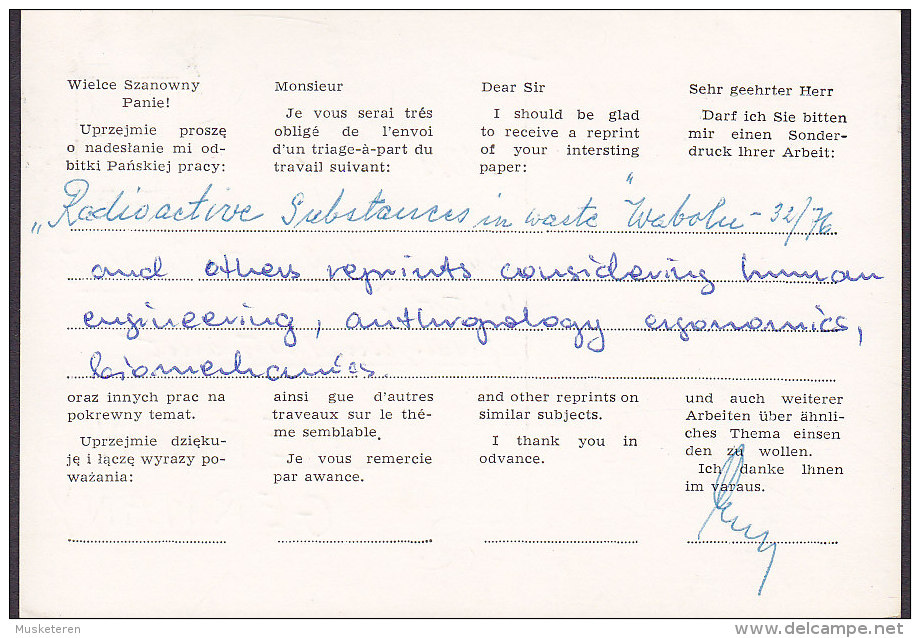 Wielce Szanowny
Panie!
Uprzejmie proszę
o nadesłanie mi od-
bitki Pańskiej pracy:
Monsieur
Je vous serai trés
obligé de l'envoi
d'un triage-à-part du
travail suivant:
Dear Sir
I should be glad
to receive a reprint
of your intersting
paper:
Sehr geehrter Herr
Darf ich Sie bitten
mir einen Sonder-
druck lhrer Arbeit:
„Radioactive Substances in waste" Wabolu - 32/76
and others reprints considering human
engineering, anthropology ergonomics,
biomechanics.
oraz innych prac na
pokrewny temat.
Uprzejmie dzięku-
ję i łączę wyrazy po-
ważania:
ainsi gue d'autres
traveaux sur le thé-
me semblable.
Je vous remercie
par awance.
and other reprints on
similar subjects.
I thank you in
odvance.
und auch weiterer
Arbeiten über ähnli-
ches Thema einsen
den zu wollen.
Ich danke lhnen
im varaus.
Musketeren
www.delcampe.net